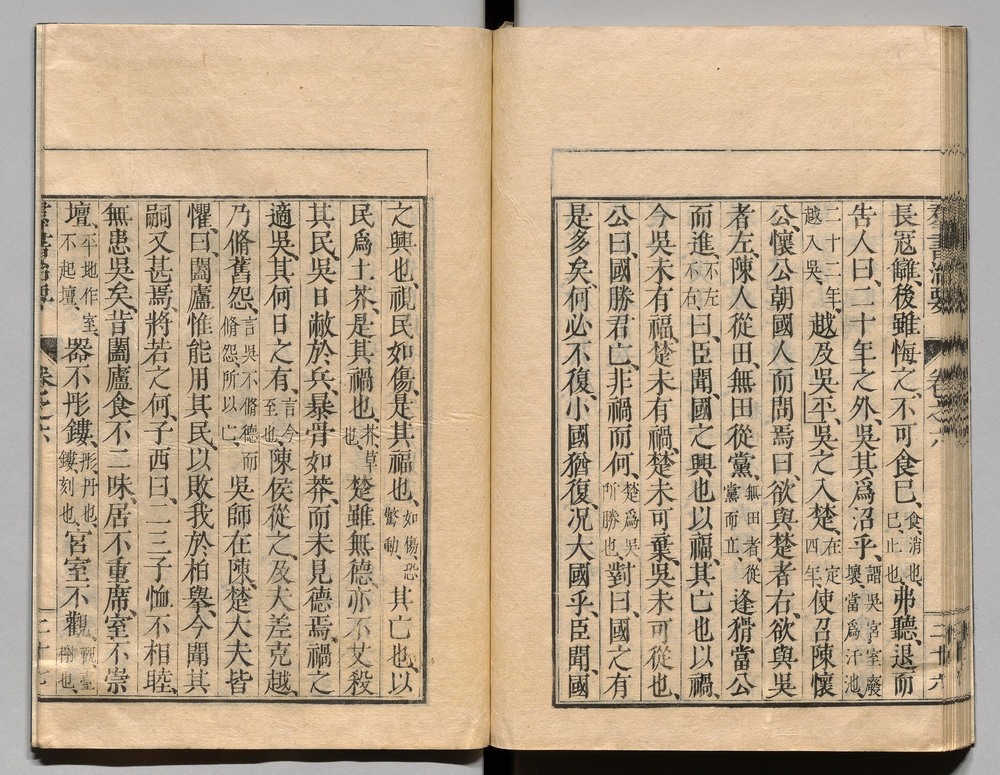 羣書治要 卷之六 二十六
長冦讎、後雖悔之、不可食已、食消也、已止也、弗聽、退而
告人曰、二十年之外、吳其爲沼乎、謂吳宮室廢壞、當爲汙池、
二十二年、越入吳、越及吳平、吳之入楚、在定四年使召陳懷
公、懷公朝國人而問焉曰、欲與楚者右、欲與吳
者左、陳人從田、無田從黨、無田者、從黨而立、逢猾當公
而進、不左不右、曰、臣聞國之興也以福、其亡也以禍、
今吳未有福、楚未有禍、楚未可棄、吳未可從也、
公曰、國勝君亡、非禍而何、楚爲吳所勝也、對曰、國之有
是多矣、何必不復、小國猶復、况大國乎、臣聞、國
之興也、視民如傷、是其福也、如傷、恐驚動、其亡也、以
民爲土芥、是其禍也、芥、草也、楚雖無德、亦不艾殺
其民、吳日敝於兵、暴骨如莽、而未見德焉、禍之
適吳、其何日之有、言今至也、陳侯從之、及夫差克越、
乃脩舊怨、言吳不脩德而脩怨、所以亡、吳師在陳、楚大夫皆
懼曰、闔廬惟能用其民、以敗我於柏擧、今聞其
嗣又甚焉、將若之何、子西曰、二三子恤不相睦、
無患吳矣、昔闔廬食不二味、居不重席、室不崇
壇、平地作室、不起壇、器不彤鏤、彤、丹也、鏤、刻也、宮室不觀、觀、臺榭也、
羣書治要 卷之六 二十七